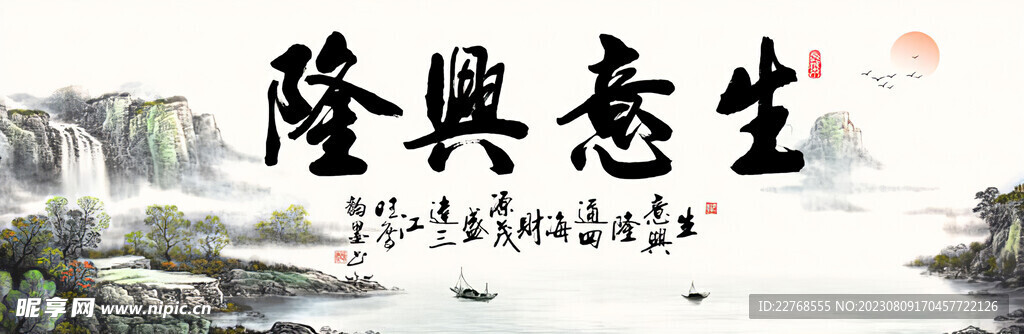 生意興隆
生
意興
隆
通四
海
財
源茂
盛
達三
江
昵享网 www.nipic.cn
ID:22768555 NO:20230809170457722126